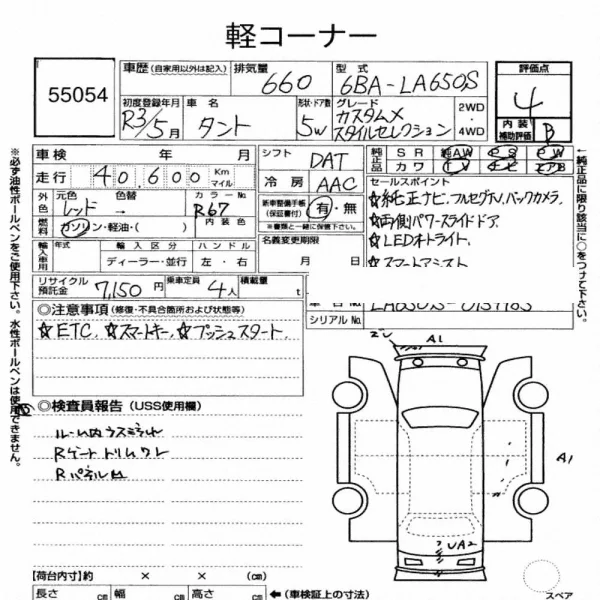 軽コーナー
55054
車歴 (自家用以外は記入) 排気量 660 型式 6BA-LA650S
初度登録年月 R3/5月 車名 タント 形状・ドア数 5W グレード カスタムX スタイルセレクション 2WD・4WD
評価点 4
内装補助評価 B
車検 年 月
走行 40,600 Km マイル
シフト DAT
純正品 SR 純AW PS PW
カワ TV ナビ エアB
外色 元色 レッド 色替 → カラーNo. R67 内装色
冷房 AAC
燃料 ガソリン・軽油・( )
新車整備手帳 (保証書付) 有・無
※書類と一緒に保管して下さい。
輸入車用 年式 輸入区分 ディーラー・並行 ハンドル 左・右
名義変更期限 月 日
リサイクル預託金 7,150円 乗車定員 4人 積載量 t
セールスポイント
☆純正ナビ、フルセグTV、バックカメラ、
☆両側パワースライドドア、
☆LEDオートライト、
☆スマートアシスト
シリアルNo.
◎注意事項 (修復・不具合箇所および状態等)
☆ETC、☆スマートキー、☆プッシュスタート、
◎検査員報告 (USS使用欄)
ルーム内ウスミット
Rゲートトリムワレ
Rパネル凹
A1
A1
UA2
スペア
【荷台内寸】約 × × (cm)
長さ cm 幅 cm 高さ cm ←(車検証上の寸法)
※必ず油性ボールペンをご使用下さい。水性ボールペンは使用できません。
←純正品に限り該当に○をつけて下さい。